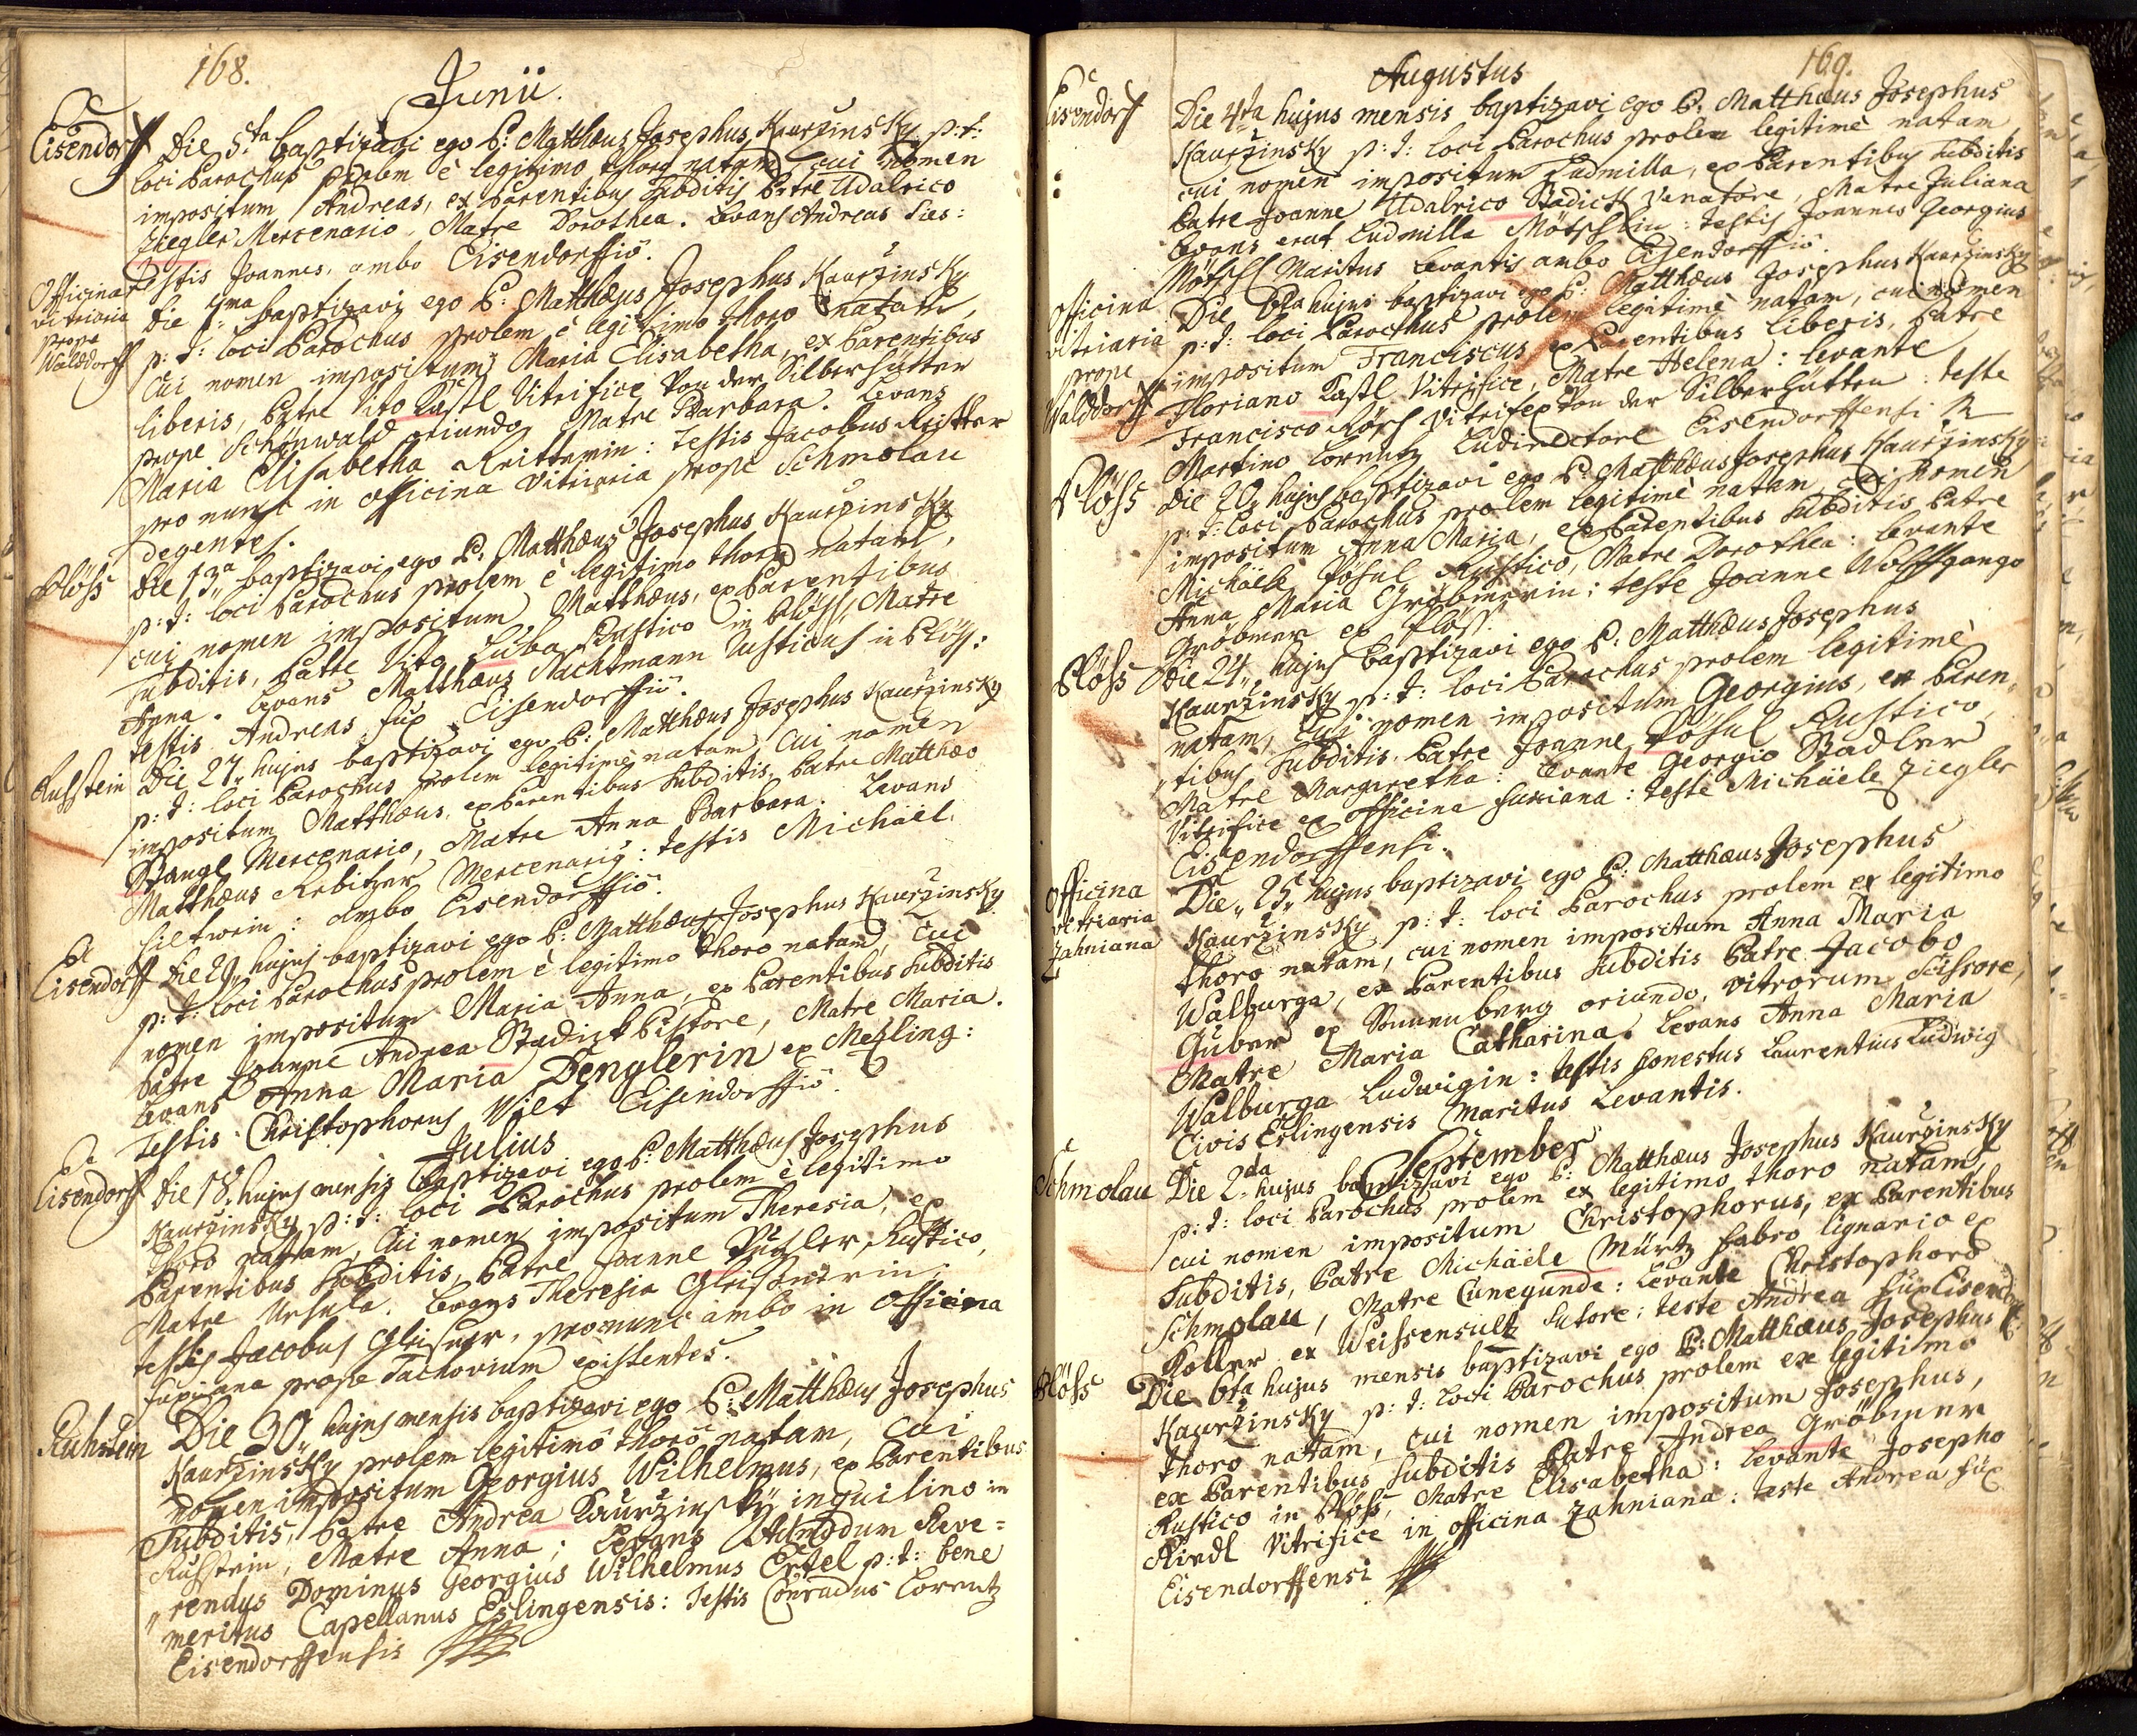 168.
Junii.
Eisendorff Die 5ta baptizavi ego P: Matthæus Josephus Kaurzinsky p: t:
loci Parochus prolem è legitimo thoro natam, cui nomen
impositum Andreas, ex Parentibus subditis Patre Udalrico
Ziegler Mercenario, Matre Dorothea. Levans Andreas
testis Joannes, ambo Eisendorffiô.
Officina vitriaria prope Waldorff
Die baptizavi ego P: Matthæus Josephus Kaurzinsky
p: t: loci Parochus prolem è legitimo thoro natam,
cui nomen impositum Maria Elisabetha, ex Parentibus
liberis, Patre Vito Kastl Vitrifice Von der Silberhütten
prope Schönwald oriundo, Matre Barbara. Levans
Maria Elisabetha Reitterin: Testis Jacobus
pro nunc in officina vitriaria prope Schmolau
degentes.
Plöss Die 13a baptizavi ego P: Matthæus Josephus Kaurzinsky
p: t: loci Parochus prolem è legitimo thoro natam,
cui nomen impositum Matthæus, ex Parentibus
subditis, Patre Vito Luba Rustico in Plöss, Matre
Anna. Levans Matthæus Nachtmann Rusticus in Plöss:
testis Andreas Fux Eisendorffiô.
Ruhstein Die 27 hujus baptizavi ego P: Matthæus Josephus Kaurzinsky
p: t: loci Parochus prolem legitimè natam, cui nomen
impositum Matthæus, ex Parentibus subditis, Patre Matthæo
Stangl Mercenario, Matre Anna Barbara. Levans
Matthæus Rebitzer Mercenariꝰ: testis Michäel
ambo Eisendorffiô.
Eisendorff Die 29 hujus baptizavi ego P: Matthæus Josephus Kaurzinsky
p: t: loci Parochus prolem è legitimo thoro natam, cui
nomen impositum Maria Anna, ex Parentibus subditis
Patre Joanne Andrea Stadick Pistore, Matre Maria.
Levans Anna Maria Denglerin ex Meßling:
testis Christophorus Vilt Eisendorffiô.
Julius
Eisendorff Die 18. hujus mensis baptizavi ego P: Matthæus Josephus
Kaurzinsky p: t: loci Parochus prolem è legitimo
thoro natam, cui nomen impositum Theresia, ex
Parentibus subditis, Patre Joanne Rustico,
Matre Ursula. Levans Theresia Gleisnerin:
testis Jacobus Gleisner, pro nunc ambo in officina
Fuxiana prope Tachovium existentes.
Ruhstein Die 30 hujus mensis baptizavi ego P: Matthæus Josephus
Kaurzinsky prolem legitimô thorô natam, cui
nomen impositum Georgius Wilhelmus, ex Parentibus
subditis, Patre Andrea Kaurzinsky inquilino in
Ruhstein, Matre Anna; Levans Admodum Reve=
rendus Dominus Georgius Wilhelmus Ertel p: t: bene
meritus Capellanus Eslingensis: Testis Conradus Lorentz
Eisendorffensis
169.
Augustus
Eisendorff Die 4ta hujus mensis baptizavi ego P. Matthæus Josephus
Kaurzinsky p: t: loci Parochus prolem legitimè natam,
cui nomen impositum Ludmilla, ex Parentibus subditis
Patre Joanne Udalrico Stadick Venatore, Matre Juliana
Levans erat Ludmilla Mötschlin: testis Joannes Georgius
Mötschl Maritus Levantis ambo Eisendorffiô.
Officina vitriaria prope Walddorff
Die 6ta hujus baptizavi ego P: Matthæus Josephus Kaurzinsky
p: t: loci Parochus prolem legitimè natam, cui nomen
impositum Franciscus ex Parentibus liberis, Patre
Floriano Kastl Vitrifice, Matre Helena: levante
Francisco vitrifex Von der Silberhütten: teste
Martino Lorentz Ludirectore Eisendorffensi
Plöss Die 20 hujus baptizavi ego P: Matthæus Josephus Kaurzinsky
p: t: loci Parochus prolem legitimè natam, cui nomen
impositum Anna Maria, ex Parentibus subditis Patre
Michäele Pösul Rustico, Matre Dorothea: levante
Anna Maria Gröbmerin: teste Joanne Wolffgango
Gröbmer ex Plöss.
Plöss Die 24 hujus baptizavi ego P: Matthæus Josephus
Kaurzinsky p: t: loci Parochus prolem legitimè
natam, cui nomen impositum Georgius, ex Paren
tibus subditis Patre Joanne Pösul Rustico,
Matre Margaretha: levante Georgio Stadler
Vitrifice ex officina Fuxiana: teste Michäele Ziegler
Eisendorffensi.
Officina vitriaria Zahniana
Die 25 hujus baptizavi ego P: Matthæus Josephus
Kaurzinsky p: t: loci Parochus prolem ex legitimo
thoro natam, cui nomen impositum Anna Maria
Walburga, ex Parentibus subditis Patre Jacobo
Guber ex Sonnenberg oriundo, vitrorum Scissore,
Matre Maria Catharina. Levans Anna Maria
Walburga Ludwigin: testis honestus Laurentius Ludwig
Civis Eslingensis Maritus Levantis.
September
Schmolau Die 2da hujus baptizavi ego P: Matthæus Josephus Kaurzinsky
p: t: loci Parochus prolem ex legitimo thoro natam,
cui nomen impositum Christophorus, ex Parentibus
subditis, Patre Michäele Mürtz fabro lignario ex
Schmolau, Matre Cunegunde: Levante Christophoro
Koller ex Weissensultz Sutore: teste Andrea Fux Eisendorff:
Plöss Die 6ta hujus mensis baptizavi ego P: Matthæus Josephus
Kaurzinsky p: t: loci Parochus prolem ex legitimo
thoro natam, cui nomen impositum Josephus,
ex Parentibus subditis Patre Andrea Gröbmer
Rustico in Plöss, Matre Elisabetha: levante Josepho
Riedl Vitrifice in officina Zahniana: teste Andrea Fux
Eisendorffensi